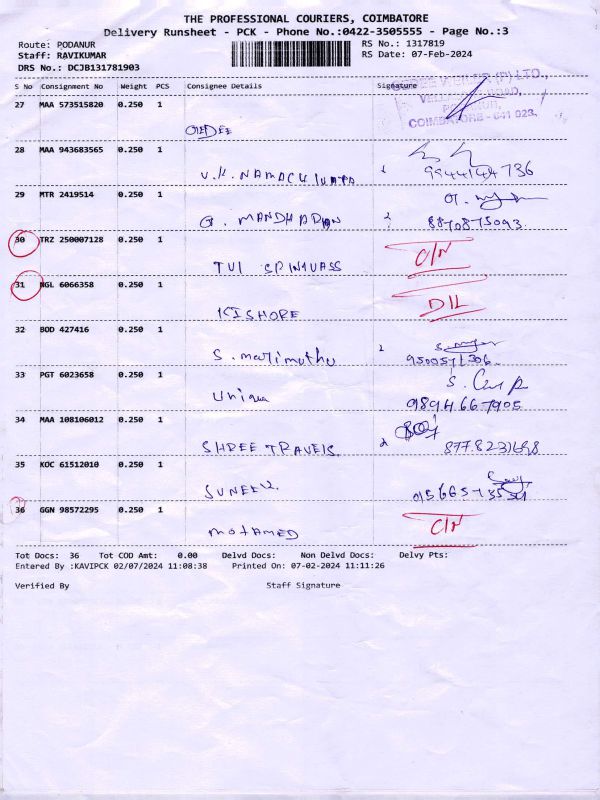 THE PROFESSIONAL COURIERS, COIMBATORE
Delivery Runsheet - PCK - Phone No.:0422-3505555 - Page No.:3
Route: PODANUR RS No.: 1317819
Staff: RAVIKUMAR RS Date: 07-Feb-2024
DRS No.: DCJB131781903
S No Consignment No Weight PCS Consignee Details Signature
COIMBATORE - 641 023.
27 MAA 573515820 0.250 1
28 MAA 943683565 0.250 1
9944144736
29 MTR 2419514 0.250 1
G. MANOHARAN 8870875093
30 TRZ 250007128 0.250 1 C/N
TVI SRINIVASS
31 NGL 6066358 0.250 1 D/L
KISHORE
32 BOD 427416 0.250 1
S. marimuthu
33 PGT 6023658 0.250 1
Unique 9894667905
34 MAA 108106012 0.250 1
SHREE TRAVELS
35 KOC 61512010 0.250 1
36 GGN 98572295 0.250 1 C/N
mohamed
Tot Docs: 36 Tot COD Amt: 0.00 Delvd Docs: Non Delvd Docs: Delvy Pts:
Entered By :KAVIPCK 02/07/2024 11:08:38 Printed On: 07-02-2024 11:11:26
Verified By Staff Signature